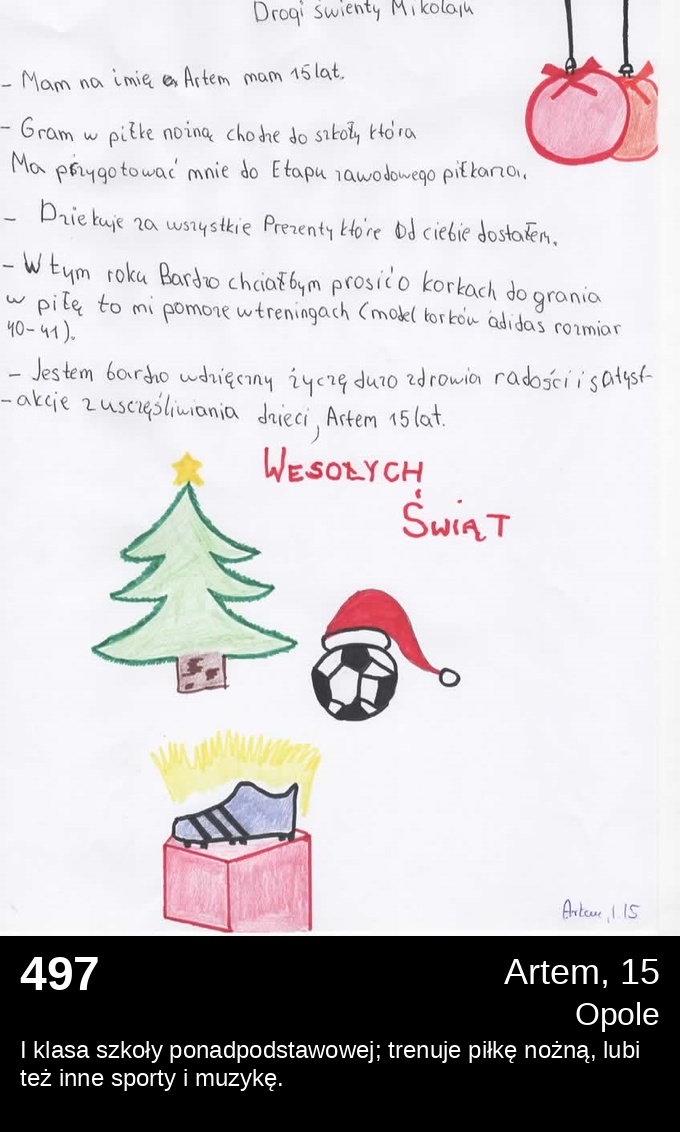 Drogi świenty Mikołaju
- Mam na imię Artem mam 15 lat.
- Gram w piłke nożną chodze do szkoły która
Ma przygotować mnie do Etapu zawodowego piłkarza.
- Dziekuje za wszystkie Prezenty które Od ciebie dostałem.
- W tym roku Bardzo chciałbym prosić o korkach do grania
w piłę to mi pomoze w treningach (model korków adidas rozmiar
40-41).
- Jestem bardzo wdzięczny życzę duzo zdrowia radości i satysf-
-akcje z uszczęśliwiania dzieci, Artem 15 lat.
WESOŁYCH
ŚWIĄT
Artem, l. 15
497
Artem, 15
Opole
I klasa szkoły ponadpodstawowej; trenuje piłkę nożną, lubi
też inne sporty i muzykę.